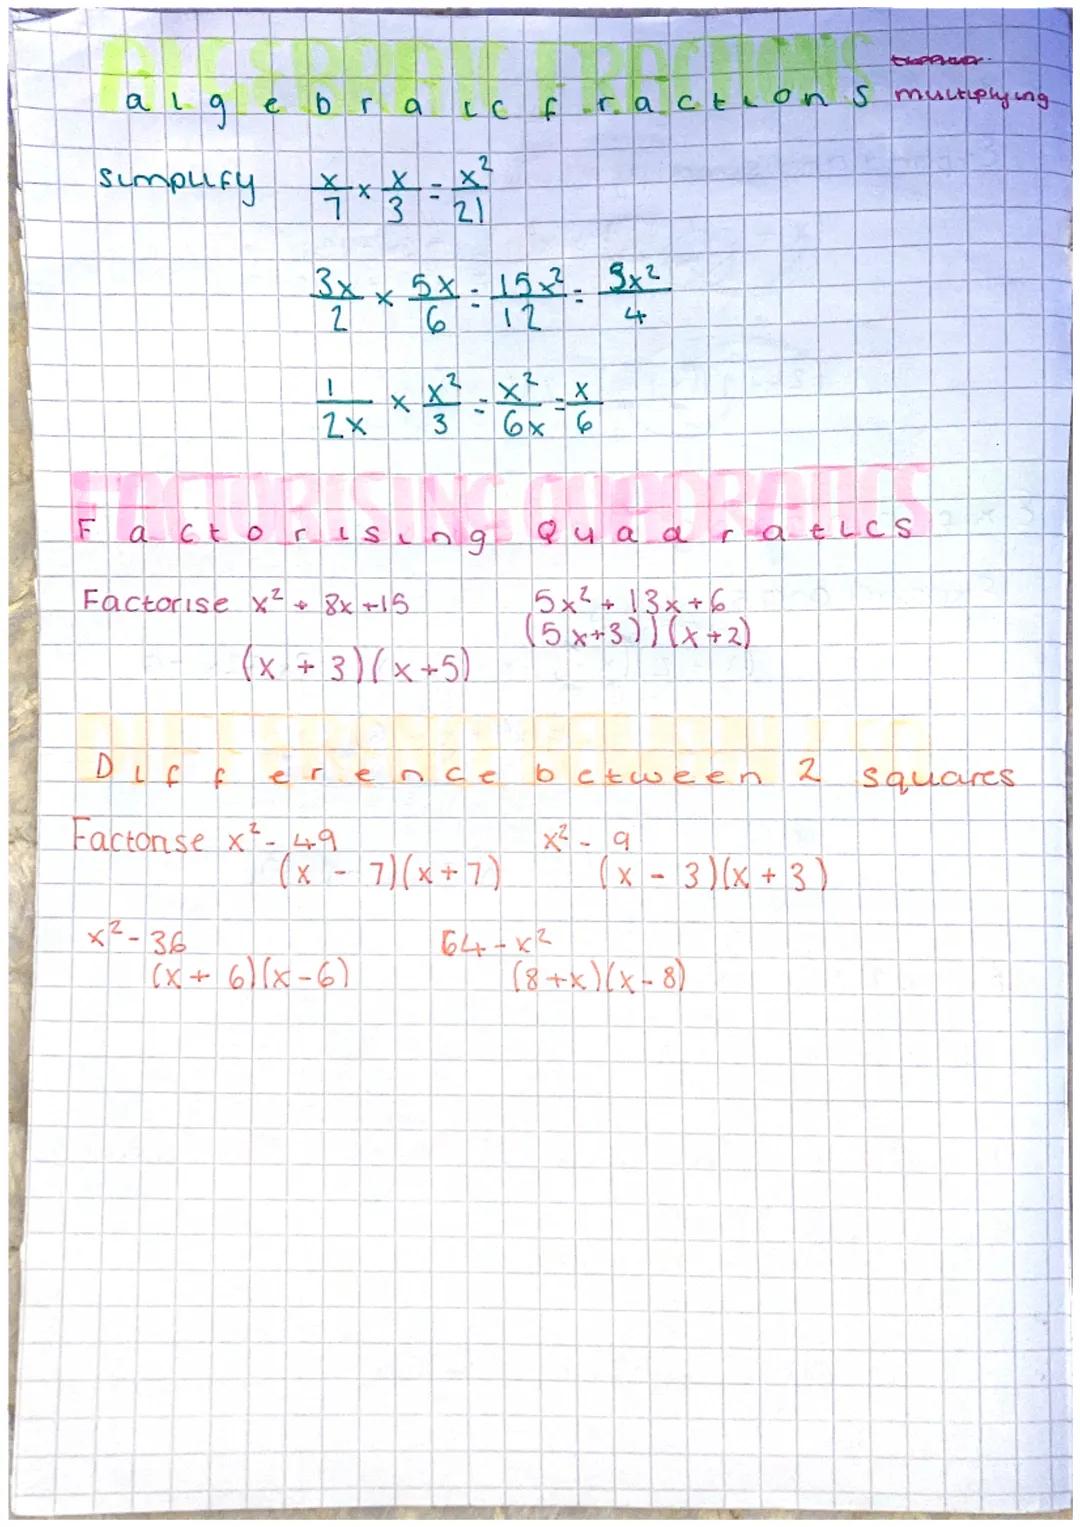 ALGEBRAIC FRACTIONS
algebraic fractions multiplying
simplify x/7 × x/3 = x²/21
3x/2 × 5x/6 = 15x²/12 = 5x²/4
1/2x × x²/3 = x²/6x = x/6
FACTORISING QUADRATICS
Factorising Quadratics
Factorise x² + 8x +15 5x² + 13x + 6
(5x+3))(x+2)
(x + 3)(x+5)
Difference between 2 squares
Factorise x² - 49 x² - 9
(x - 7)(x+7) (x - 3)(x + 3)
x² - 36 64 - x²
(x + 6)(x-6) (8+x)(x-8)